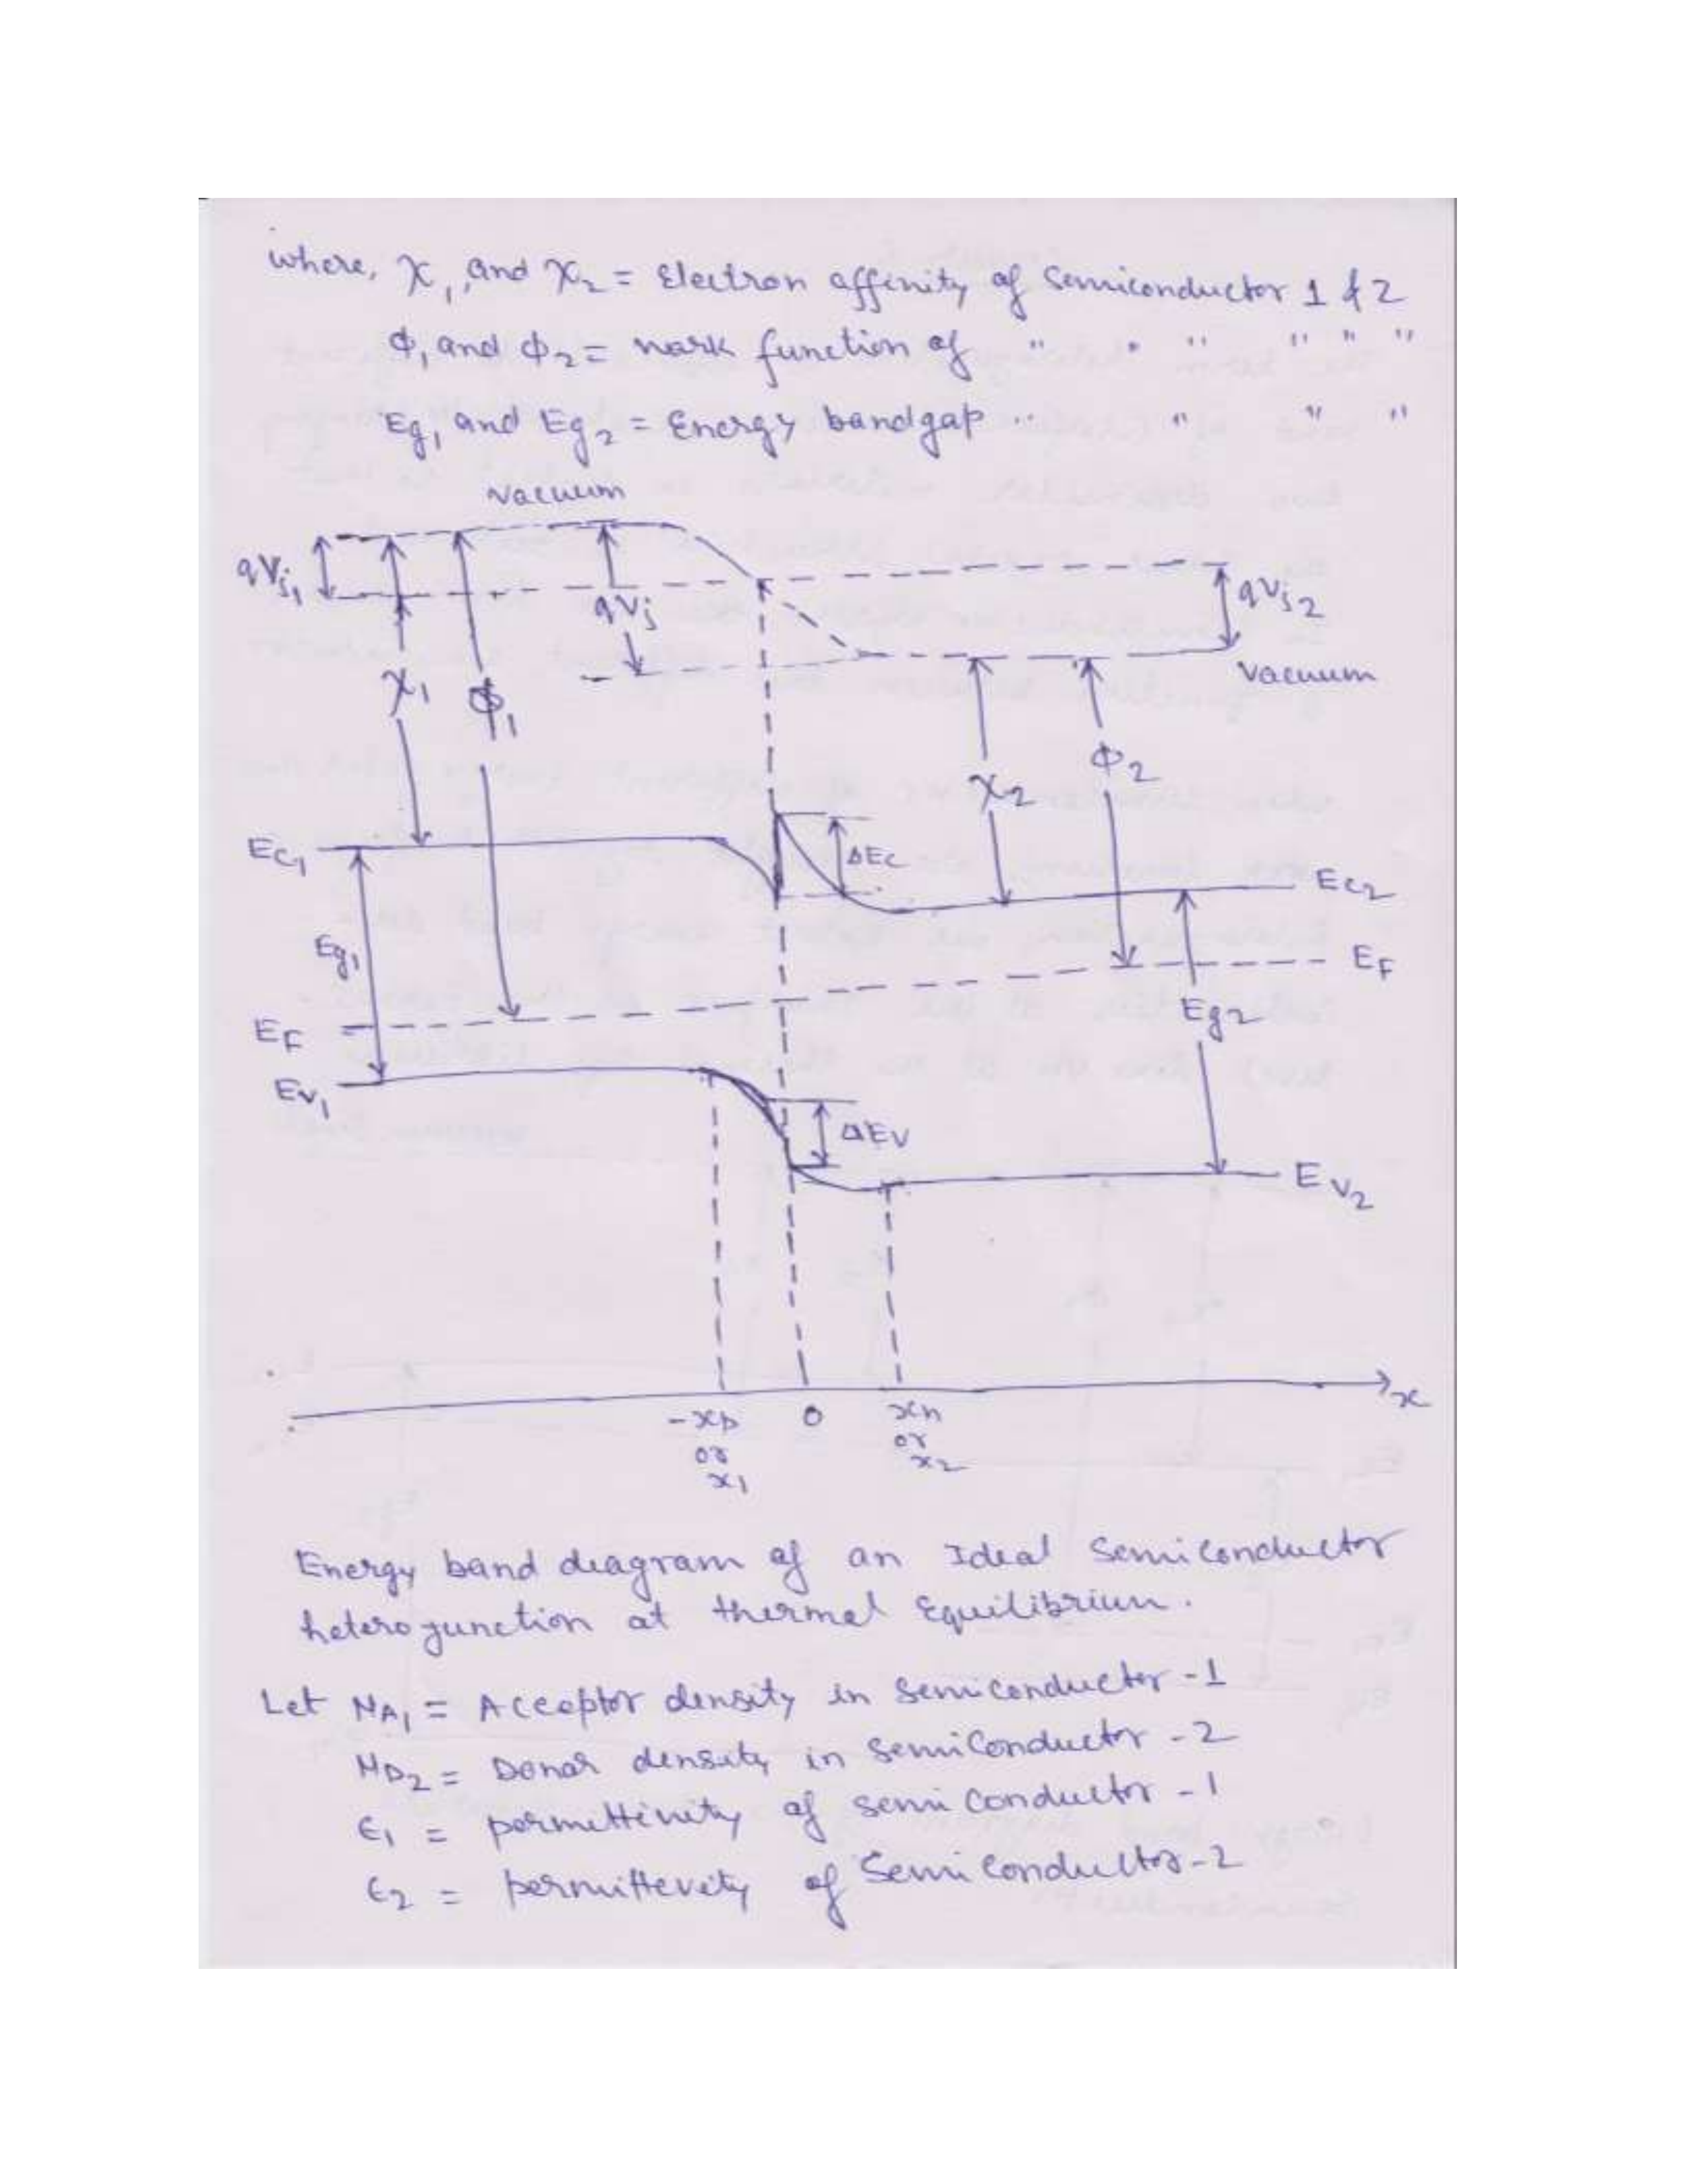 where, χ1, and χ2 = Electron affinity of Semiconductor 1 & 2
Φ1 and Φ2 = work function of " " " " " "
Eg1 and Eg2 = Energy bandgap " " " "
Vacuum
qVj1
qVj
qVj2
Vacuum
χ1
Φ1
χ2
Φ2
EC1
ΔEC
EC2
Eg1
EF
EF
Eg2
EV1
ΔEV
EV2
-xp 0 xn x
or or
x1 x2
Energy band diagram of an Ideal Semiconductor
heterojunction at thermal Equilibrium.
Let NA1 = Acceptor density in semiconductor-1
ND2 = Donar density in semiconductor-2
ϵ1 = permittivity of semiconductor-1
ϵ2 = permittevity of Semiconductor-2